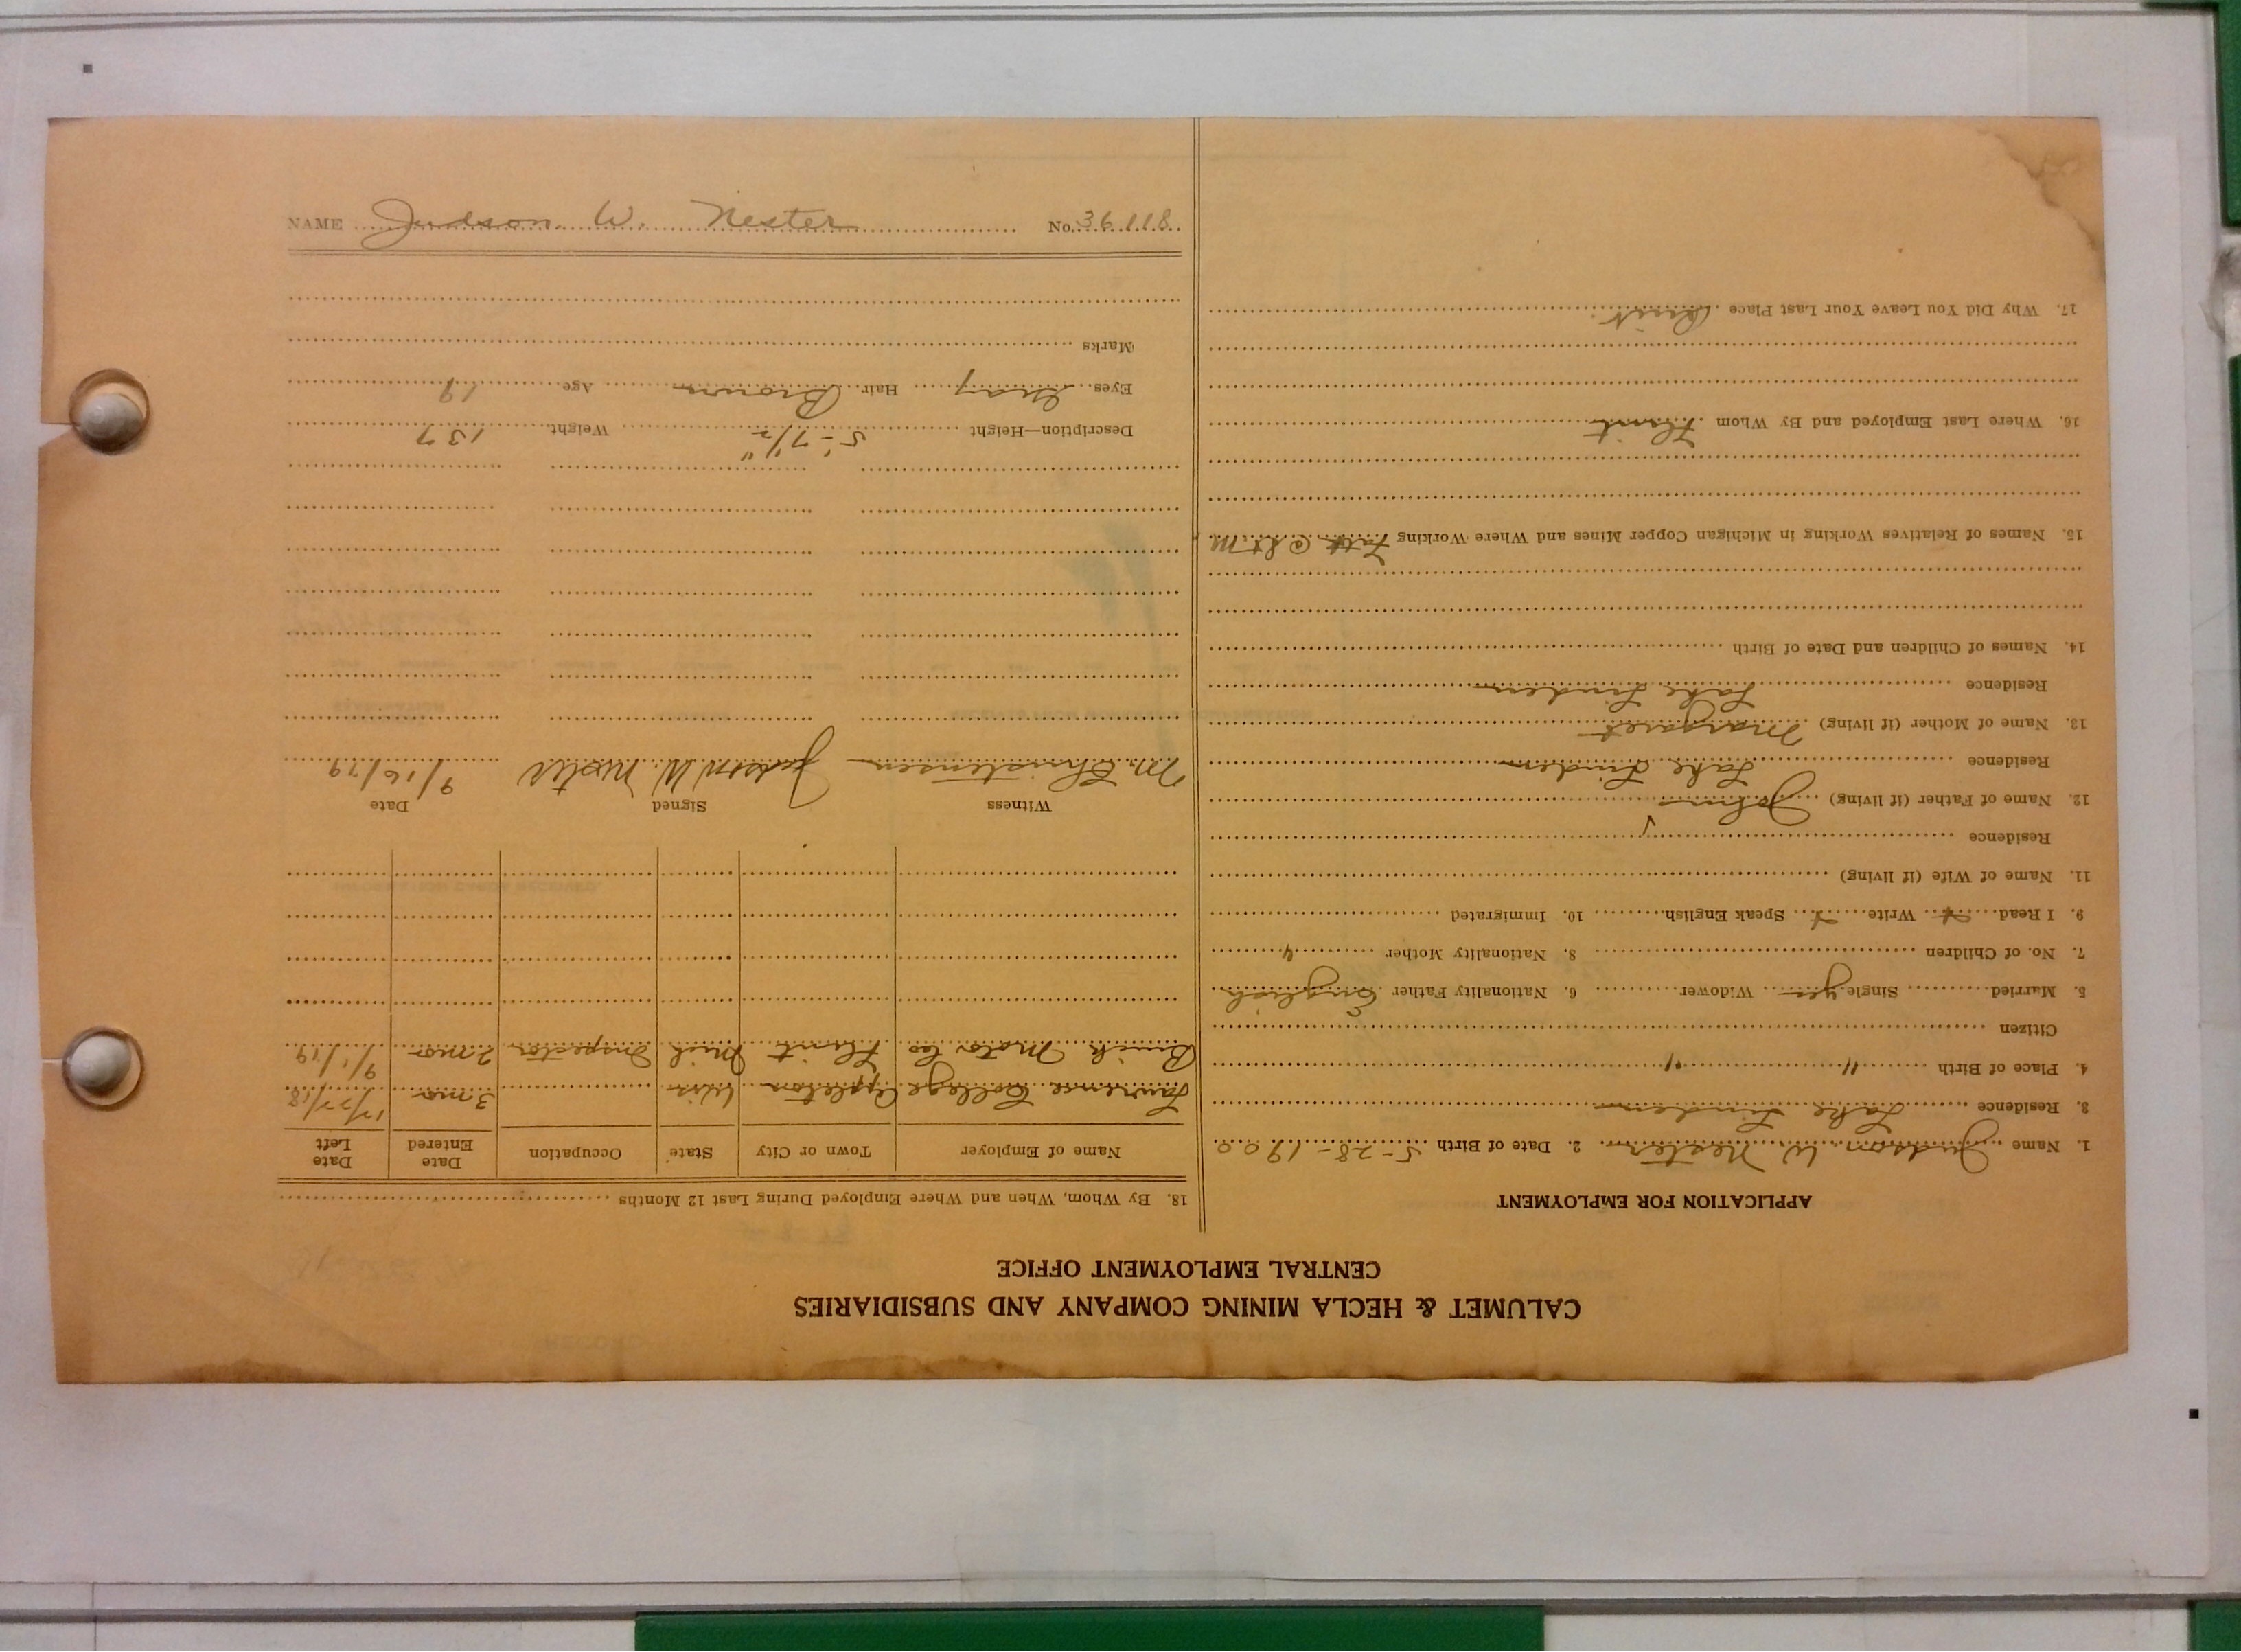 CALUMET & HECLA MINING COMPANY AND SUBSIDIARIES
CENTRAL EMPLOYMENT OFFICE
APPLICATION FOR EMPLOYMENT
1. Name Judson W. Nester 2. Date of Birth 5-28-1900
3. Residence Lake Linden
4. Place of Birth " "
Citizen
5. Married Single yes Widower 6. Nationality Father English
7. No. of Children 8. Nationality Mother "
9. I Read Write Speak English 10. Immigrated
11. Name of Wife (if living)
Residence
12. Name of Father (if living) John
Residence Lake Linden
13. Name of Mother (if living) Margaret
Residence Lake Linden
14. Names of Children and Date of Birth
15. Names of Relatives Working in Michigan Copper Mines and Where Working
16. Where Last Employed and By Whom Flint
17. Why Did You Leave Your Last Place Quit
18. By Whom, When and Where Employed During Last 12 Months
Name of Employer Town or City State Occupation Date Entered Date Left
Lawrence College Appleton Wis 3 mos 12/22/18
Buick Motor Co Flint Mich Inspector 2 mos 9/1/19
Witness Signed Date
M. Christensen Judson W. Nester 9/16/19
Description—Height 5'-7 1/2" Weight 137
Eyes Gray Hair Brown Age 19
Marks
NAME Judson W. Nester No. 36118